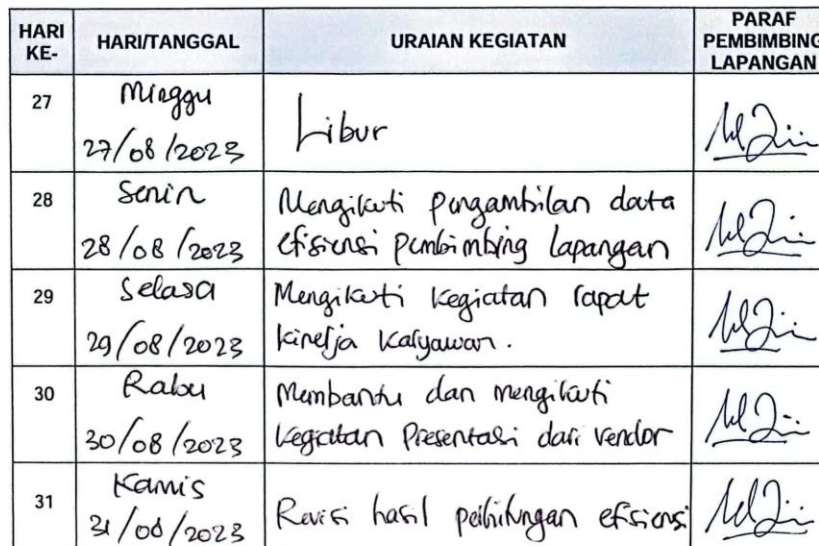 HARI KE-
HARI/TANGGAL
URAIAN KEGIATAN
PARAF PEMBIMBING LAPANGAN
27
Minggu
27/08/2023
Libur
28
Senin
28/08/2023
Mengikuti pengambilan data
efisiensi pembimbing lapangan
29
Selasa
29/08/2023
Mengikuti kegiatan rapat
kinerja karyawan.
30
Rabu
30/08/2023
Membantu dan mengikuti
kegiatan presentasi dari vendor
31
Kamis
31/08/2023
Revisi hasil perhitungan efisiensi